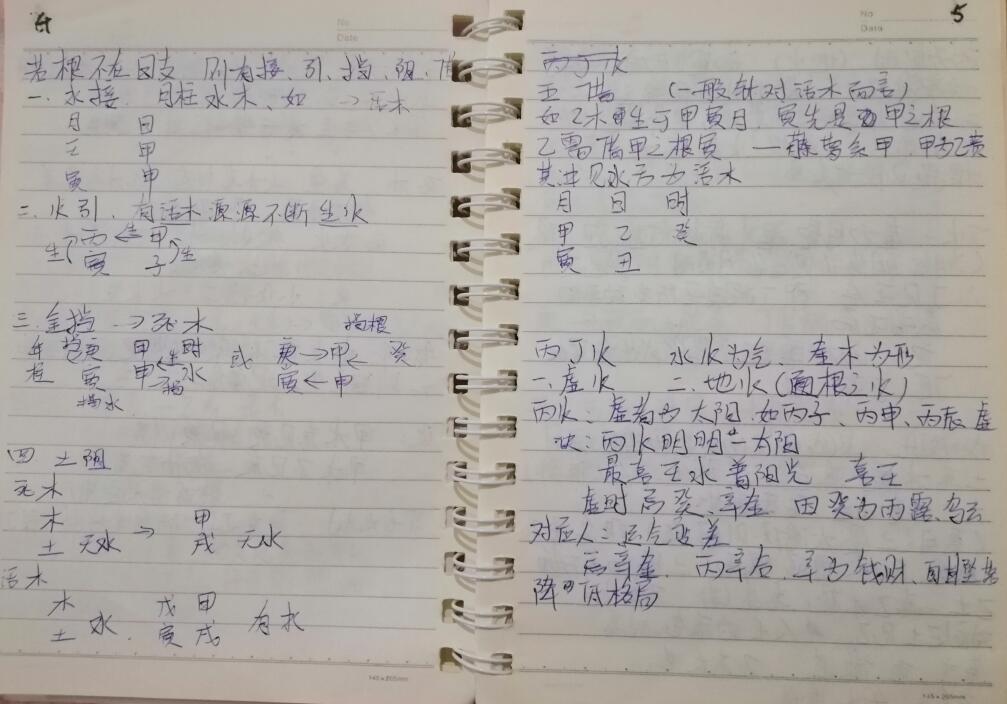 4
No
Date
若根不在日支 则有接、引、挡、阻、借
一、水接. 月柱水木、如 → 活木
月 日
壬 甲
寅 申
二、火引. 有活木源源不断生火
生 丙 ← 甲 生
寅 子
三.金挡 → 死木 挡根
年 庚 甲 时 或 庚→甲← 癸
柱 寅 申 水 寅←申
挡水
四 土阻
死木
木
土 无水 → 甲 无水
戌
活木
木 水. 戊 甲 有水
土 寅 戌
145×205mm
5
No
Date
丙丁火
五 借 (一般针对活木而言)
如乙木生于甲寅月. 寅先是甲之根
乙需借甲之根寅 一藤萝系甲.
其进见水方为活木
月 日 时
甲 乙 癸
寅 丑
丙丁火 水火为气、金木为形
一.虚火 二.地火(通根之火)
丙火:虚者为太阳.如丙子、丙申、丙辰 虚
诀:丙火明明一太阳
最喜壬水普阳光 喜壬
虚时忌癸、辛金 因癸为雨露、乌云
对应人:运气变差
忌辛金. 丙辛合.辛为钱财、
降 低格局
145×205mm